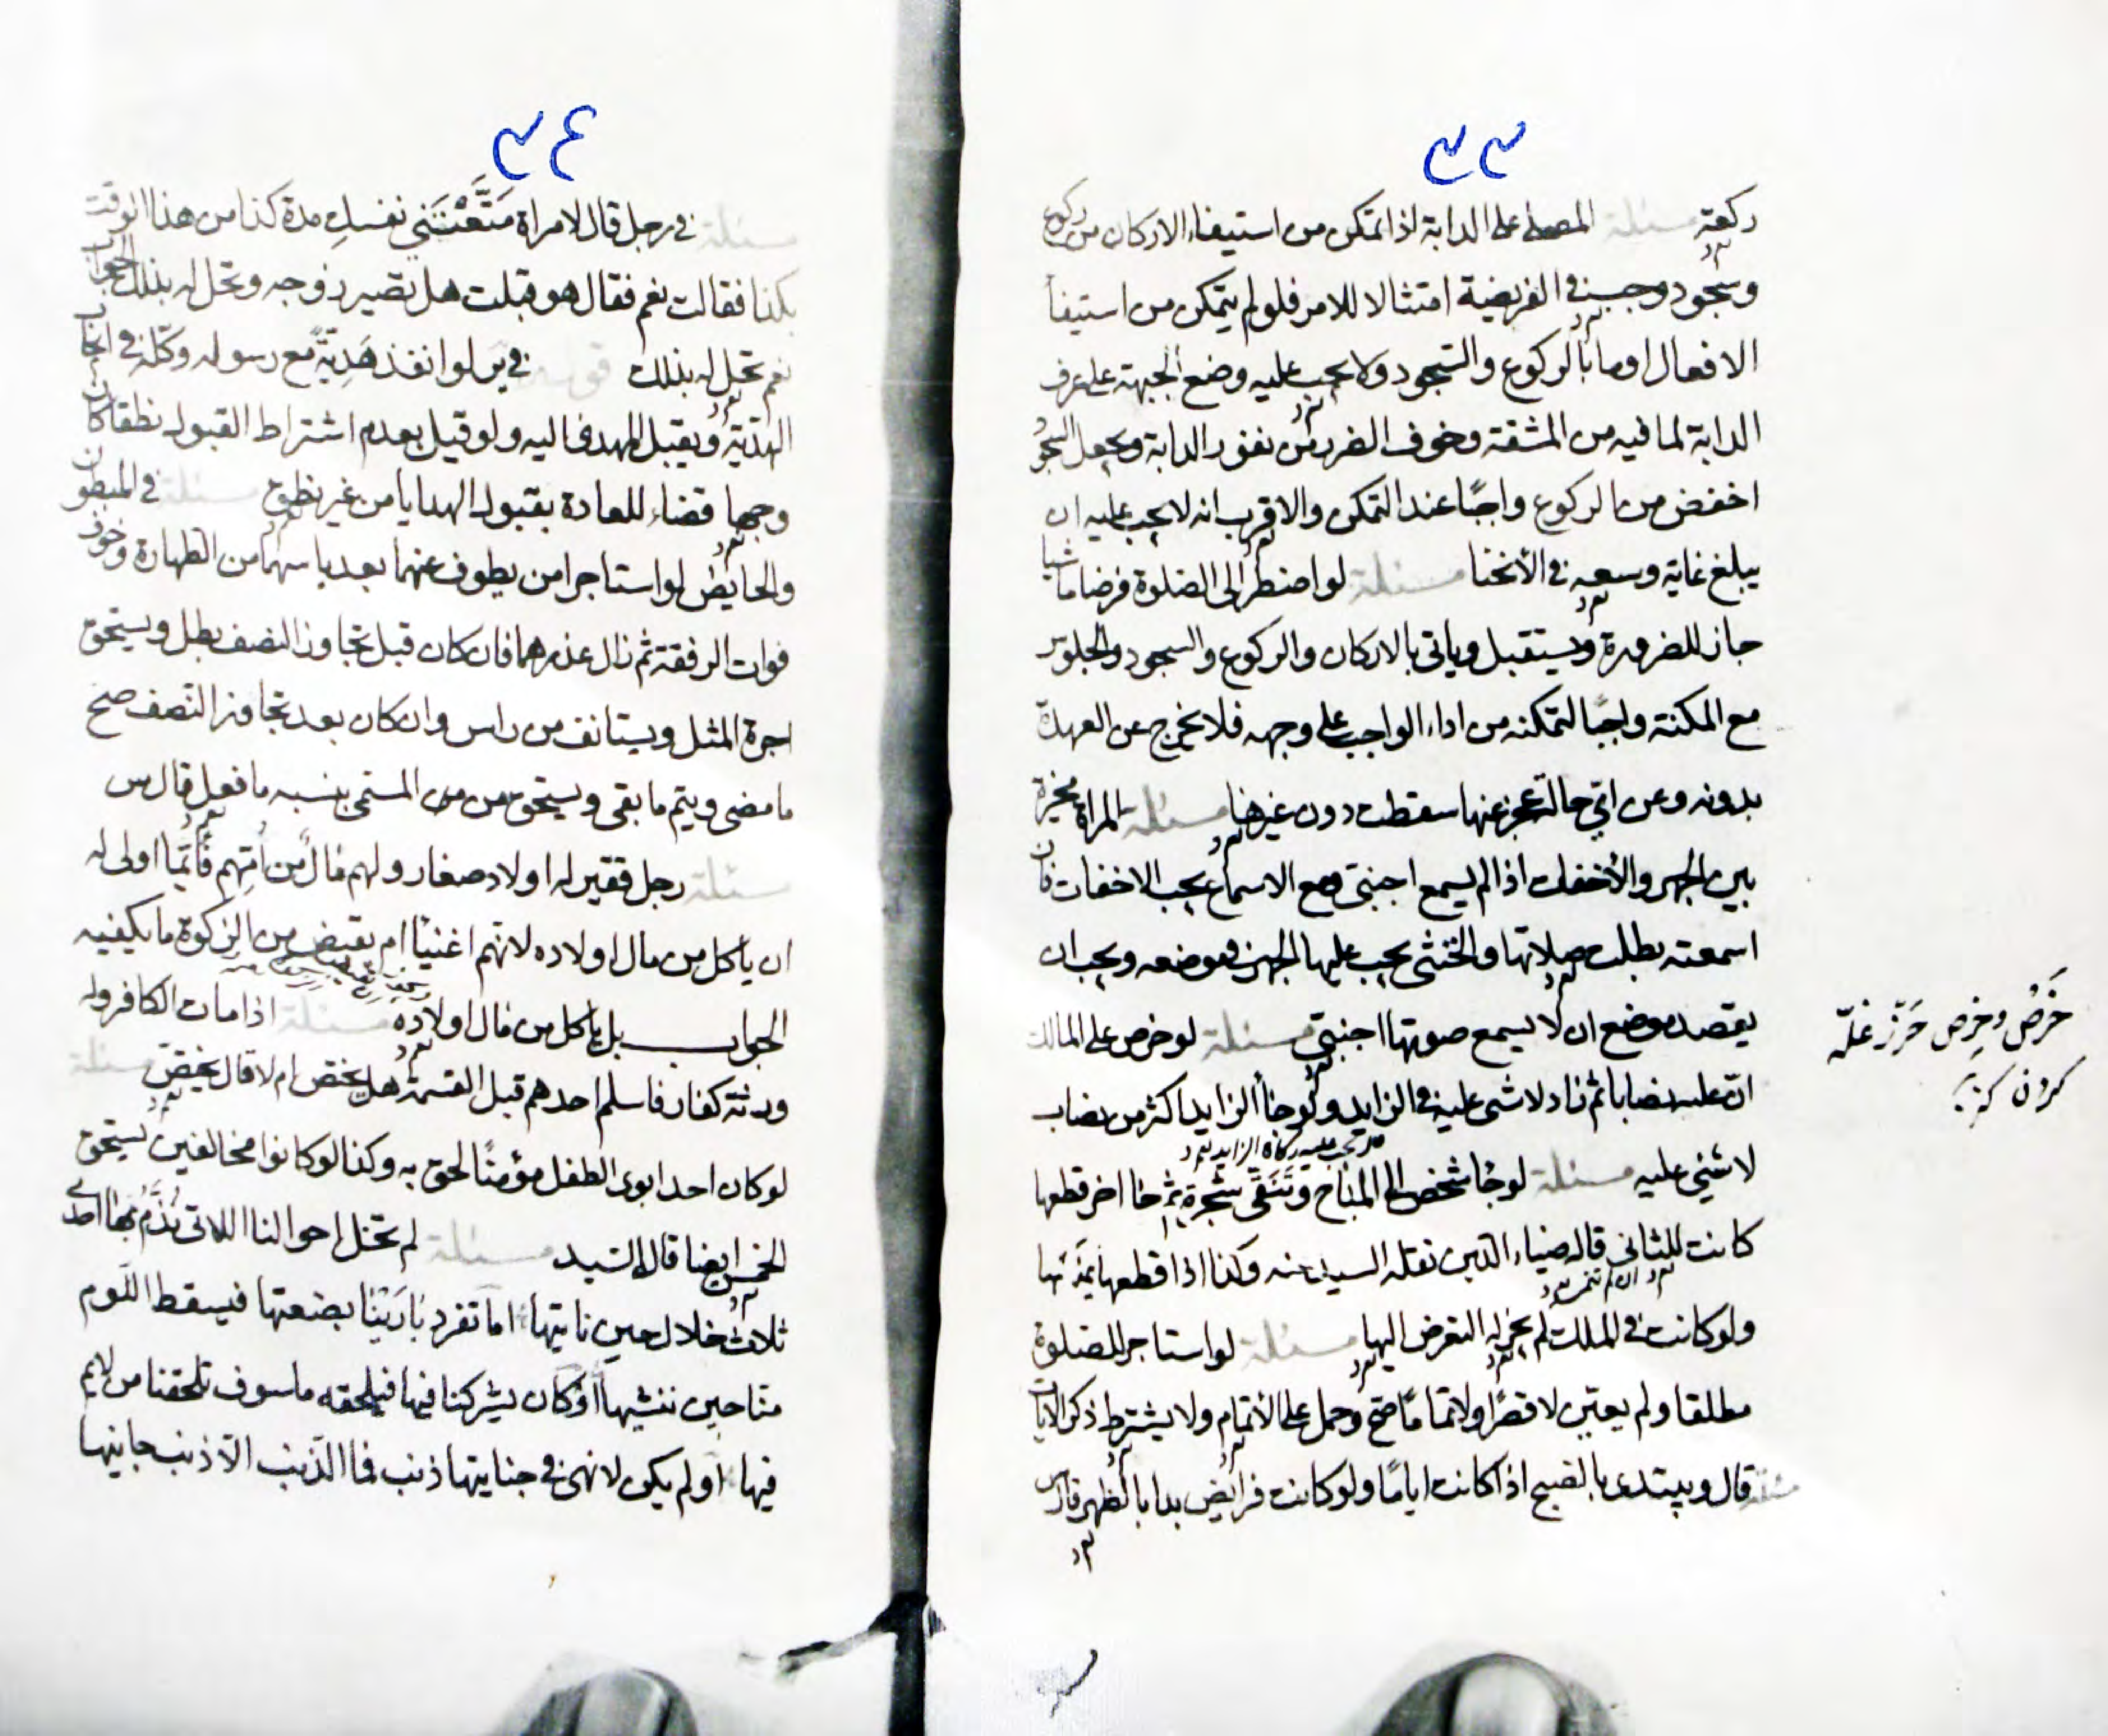 ٣٣
ركعة مسئلة المصلي على الدابة اذا تمكن من استيفاء الاركان من ركوع
وسجود وجب في الفريضة امتثالا للامر فلو لم يتمكن من استيفأ
الافعال اوما بالركوع والسجود ولا يجب عليه وضع الجبهة على عرف
الدابة لما فيه من المشقة وخوف الضرر من نفور الدابة ويجعل السجود
اخفض من الركوع واجبًا عند التمكن والاقرب انه لا يجب عليه ان
يبلغ غاية وسعه في الأنحنا مسئلة لو اضطر الى الصلوة فرضا ماشيا
جاز للضرورة ويستقبل وياتي بالاركان والركوع والسجود والجلوس
مع المكنة واجبًا لتمكنه من اداء الواجب على وجهه فلا يخرج عن العهدة
بدونه وعن اتي حالة عجز عنها سقطت دون غيرها مسئلة المراة مخيرة
بين الجهر والأخفات اذا لم يسمع اجنبي ومع الاسماع يجب الاخفات فان
اسمعته بطلت صلاتها والخنثى يجب عليها الجهر في موضعه ويجب ان
يقصد موضع ان لا يسمع صوتها اجنبي مسئلة لو خرص على المالك
خَرْصُ وخِرص حَرْز غلّه
كردن
انّ عليه نصابا ثم زاد لا شى عليه في الزايد ولو جاأ الزايد اكثر من نصاب
تجب عليه زكاة الزايد
لا شئي عليه مسئلة لو جا شخص الى المباح وتَنَقّى شجرة ثم جا اخر قطعها
كانت للثاني قاله ضياء الدين نقله السيد عنه وكذا اذا قطعها
ولو كانت في الملك لم يجز له التعرض اليها مسئلة لو استاجر للصلوة
مطلقا ولم يعين لا قصرًا ولا تمامًا صح وحمل على الأتمام ولا يشترط ذكر الايات
مسئلة قال ويبتدى بالصبح اذا كانت ايامًا ولو كانت فرايض بدا بالظهر قال س
٣٤
مسئلة في رجل قال لامراة مَتَّعْتَنَني نفسكِ مدة كذا من هذا الوقت
بكذا فقالت نعم فقال هو قبلت هل تصير زوجه وتحل له بذلك الجواب
نعم تحل له بذلك قوله في لو انفذ هَدِيةً مع رسوله وكله في ايجاب
الهديّة ويقبل المهدى اليه ولو قيل بعدم اشتراط القبول نطقا كان
وجها قضاء للعادة بقبول الهدايا من غير نطق مسئلة في المبطون
والحايض لو استاجرا من يطوف عنهما بعد ياسهما من الطهارة وخوف
فوات الرفقة ثم زال عذرهما فان كان قبل تجاوز النصف بطل ويستحق
اجرة المثل ويستانف من راس وان كان بعد تجاوز النّصف صح
ما مضى ويتم ما بقى ويستحق من المسمى بنسبه ما فعل قال س
مسئلة رجل فقير له اولاد صغار ولهم مال من اُمّهم فايّما اولى له
ان ياكل من مال اولاده لانهم اغنيأ ام يقبض من الزكوة ما يكفيه
الجواب بل ياكل من مال اولاده مسئلة اذا مات الكافر وله
ورثة كفار فاسلم احدهم قبل القسمة هل يختص ام لا قال يختص مسئلة
لو كان احد ابوى الطفل مؤمنًا لحق به وكذا لو كانوا مخالفين يستحق
الخمس ايضا قاله السيد مسئلة لم تخل احوالنا اللاتي نُذَمُّ بها احدى
ثلاث خلال حين ناتيها اما تفرد بارَئِنا بصنعتها فيسقط اللوم
منا حين ننشيها او كان يشركنا فيها فيلحقه ما سوف تلحقنا من لايم
فيها او لم يكن لالهى في جنايتها ذنب فما الذنب الّا ذنب جانيها